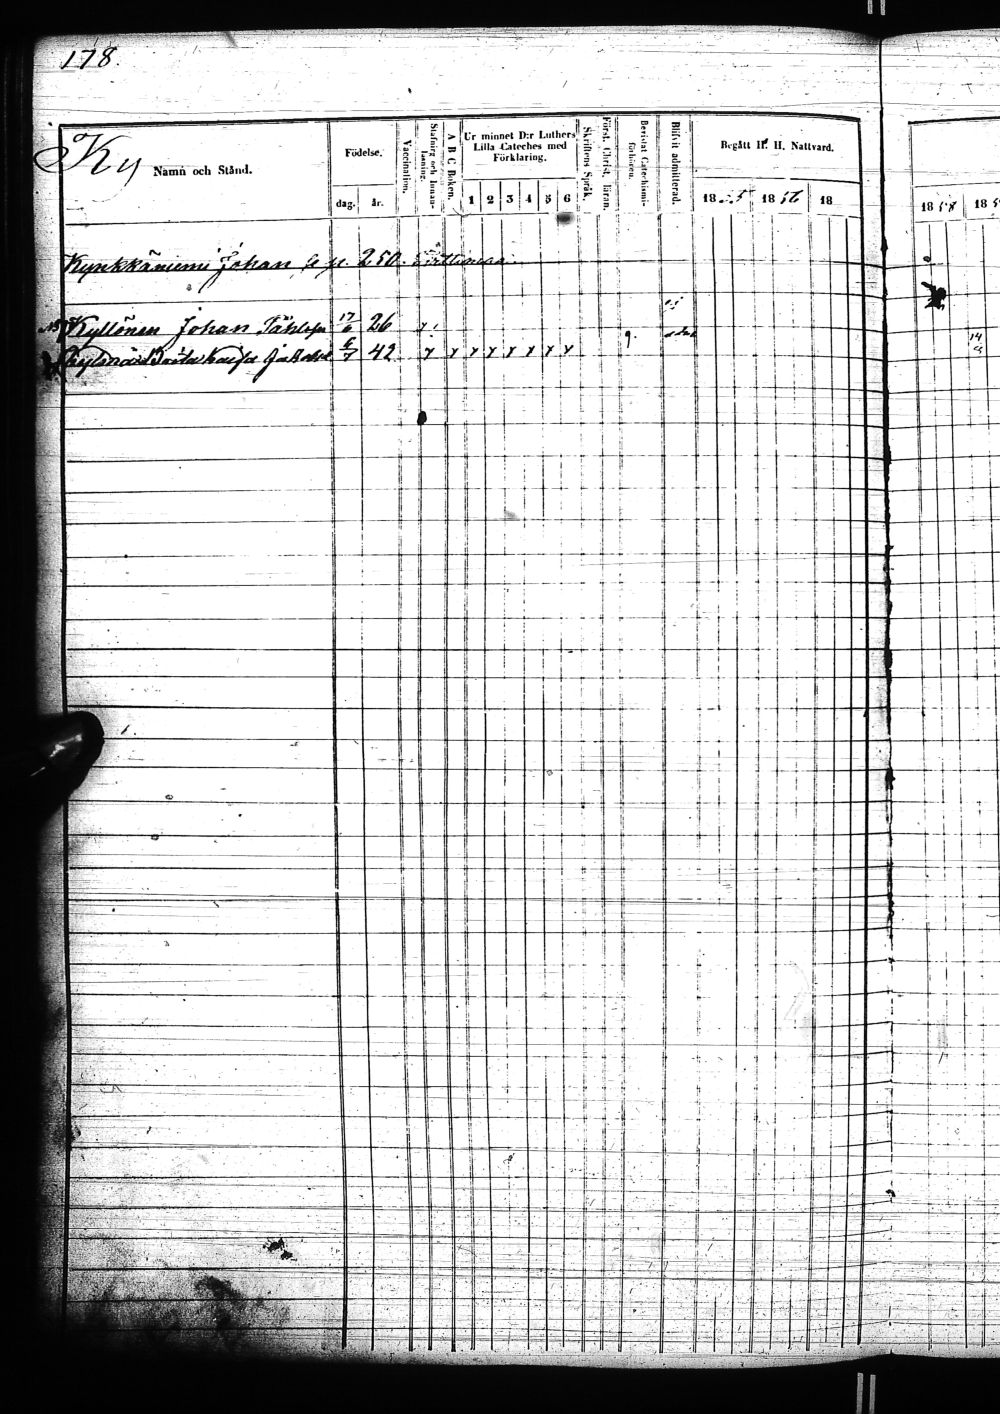 178.
Ky
Namn och Stånd.
Födelse.
dag. år.
Vaccination.
Stafning och Innan-läsning.
A B C Boken.
Ur minnet D:r Luthers Lilla Cateches med Förklaring.
1 2 3 4 5 6
Skriftens Språk.
Först. Christ. läran.
Bevistat Catechismi-förhören.
Blifvit admitterad.
Begått H. H. Nattvard.
1855 1856 18
1858 185
Kynkkäniemi Johan 250.
Kyllönen Johan 17/6 26
Kaisa 6/7 42 y y y y y y y y
9.
14